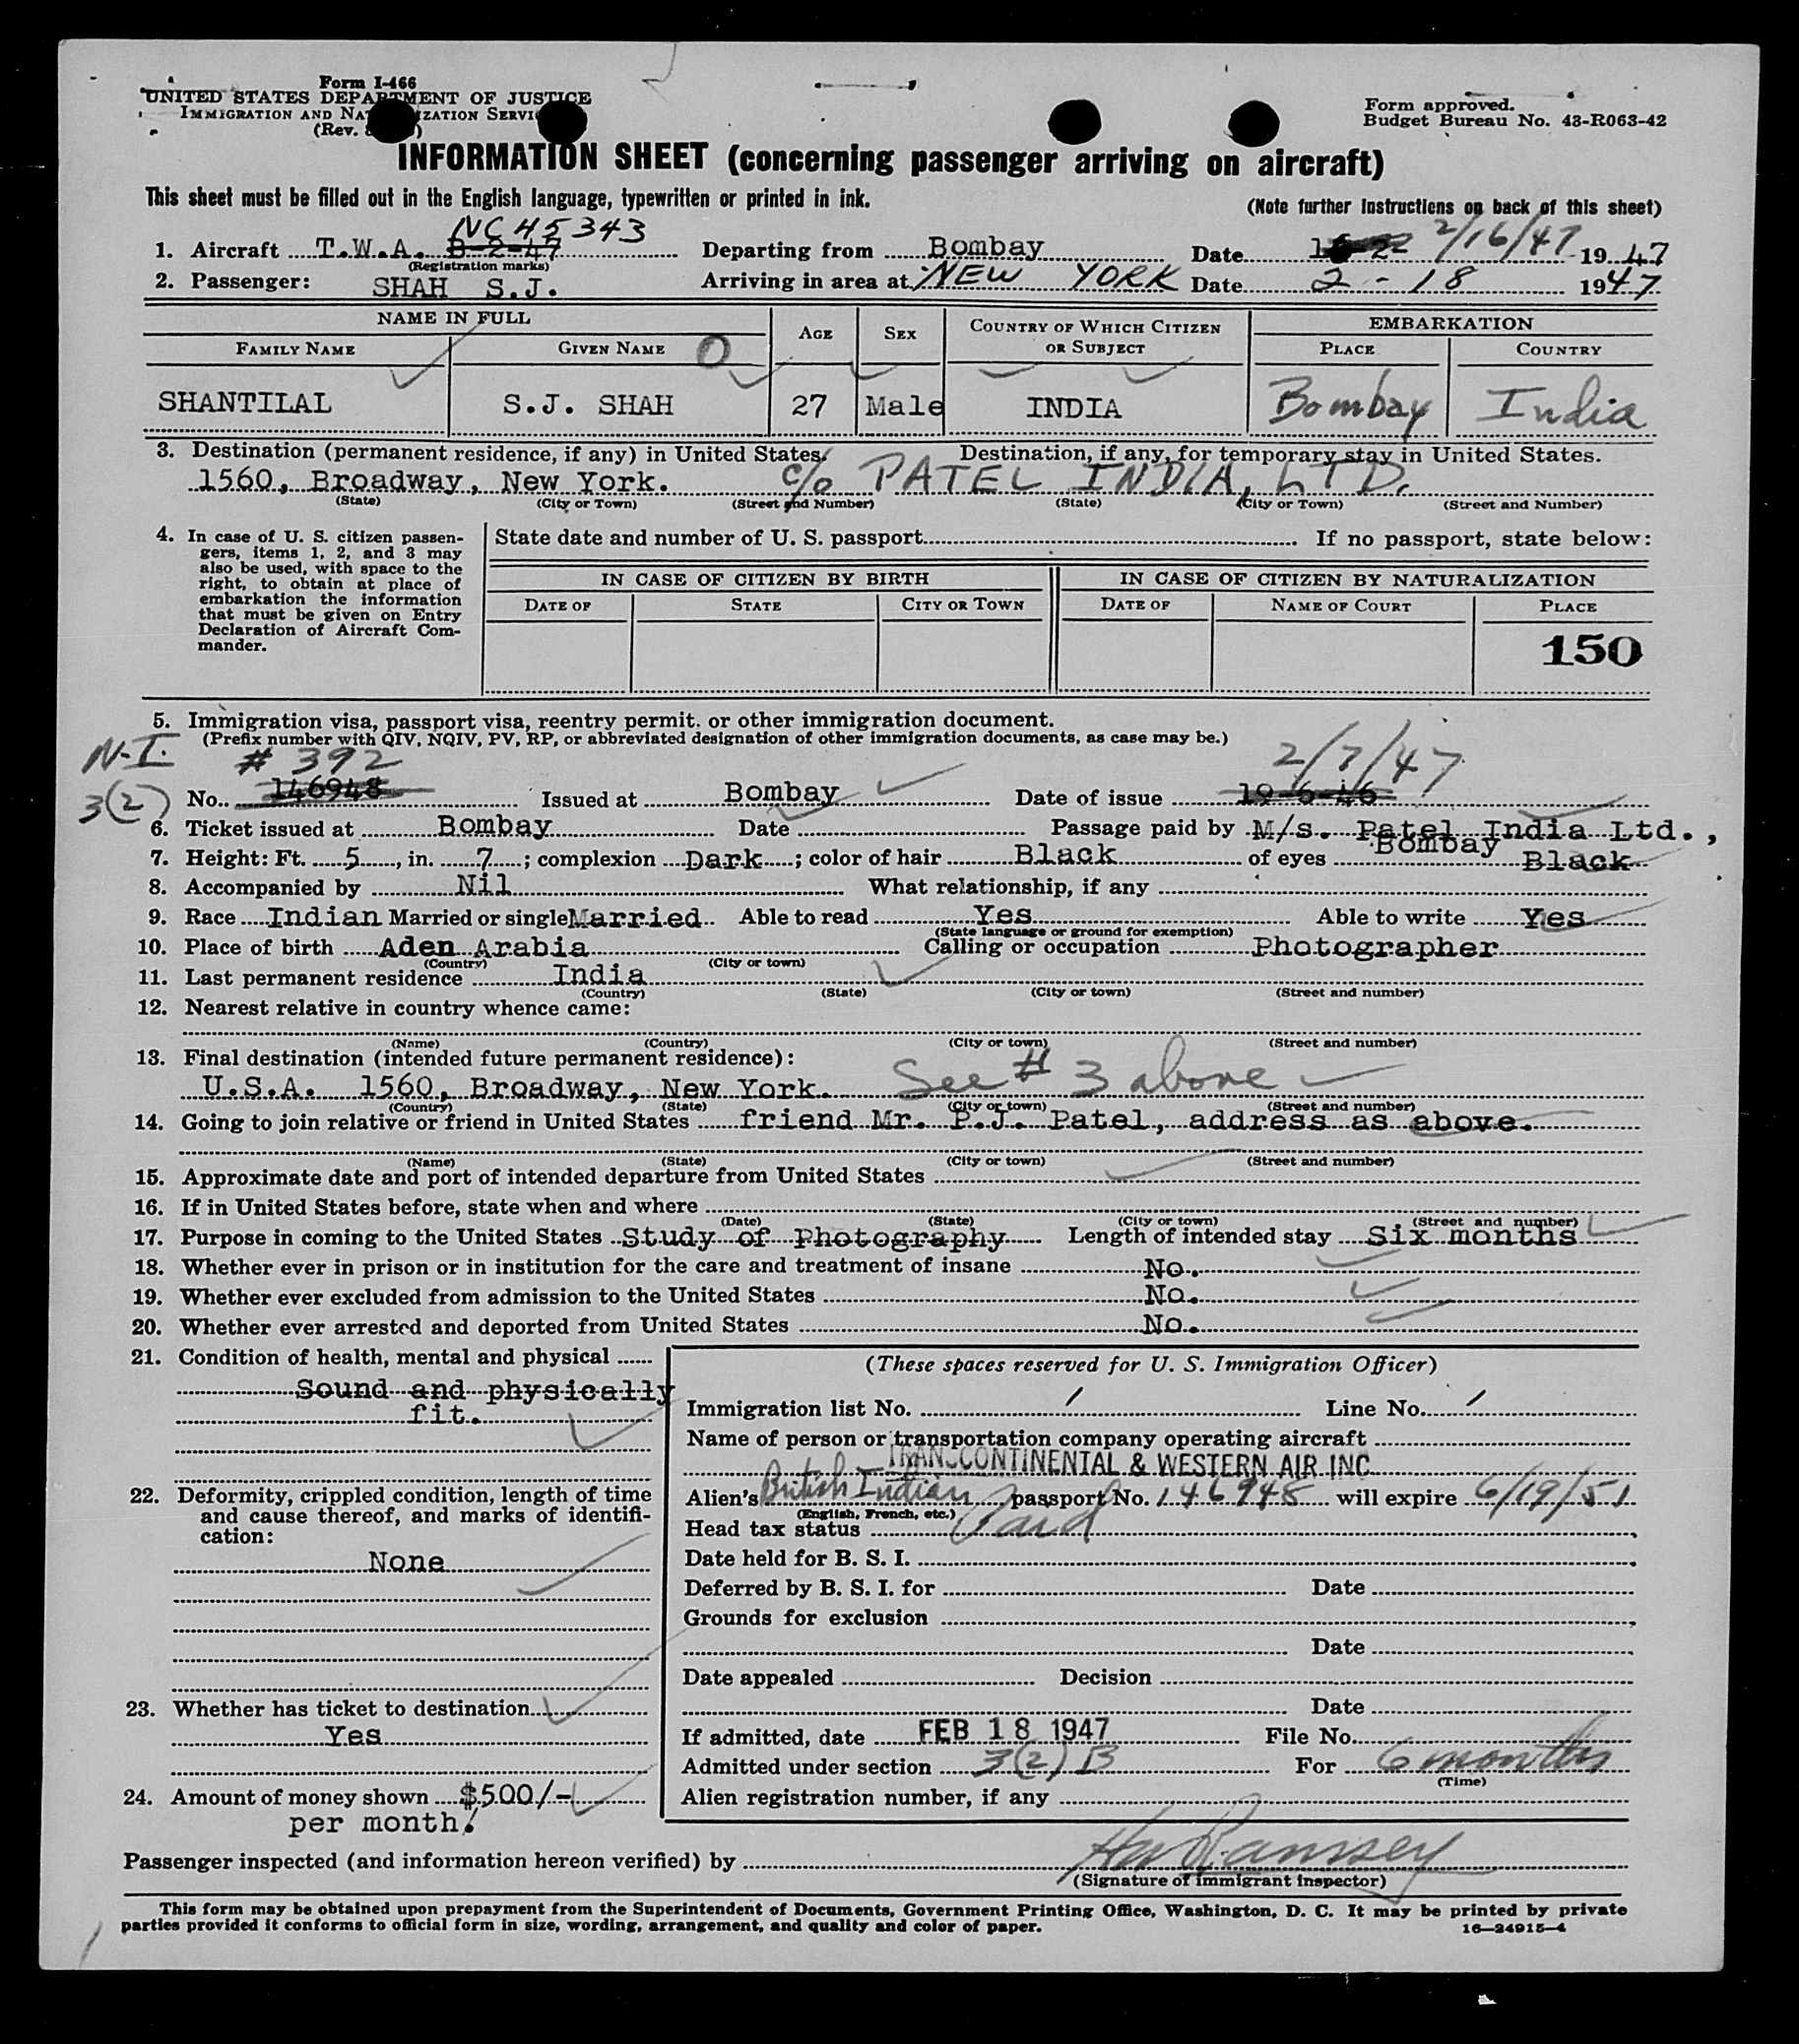 Form I-466
UNITED STATES DEPARTMENT OF JUSTICE
IMMIGRATION AND NATURALIZATION SERVICE
(Rev.
Form approved.
Budget Bureau No. 43-R063-42
INFORMATION SHEET (concerning passenger arriving on aircraft)
This sheet must be filled out in the English language, typewritten or printed in ink.
(Note further instructions on back of this sheet)
NC45343
1. Aircraft T.W.A. B-2-47 Departing from Bombay Date 2/16/47 1947
(Registration marks)
2. Passenger: SHAH S.J. Arriving in area at NEW YORK Date 2-18 1947
NAME IN FULL AGE SEX COUNTRY OF WHICH CITIZEN OR SUBJECT EMBARKATION
FAMILY NAME GIVEN NAME PLACE COUNTRY
SHANTILAL S.J. SHAH 27 Male INDIA Bombay India
3. Destination (permanent residence, if any) in United States. Destination, if any, for temporary stay in United States.
1560, Broadway, New York. c/o PATEL INDIA, LTD.
(State) (City or Town) (Street and Number) (State) (City or Town) (Street and Number)
4. In case of U. S. citizen passengers, items 1, 2, and 3 may also be used, with space to the right, to obtain at place of embarkation the information that must be given on Entry Declaration of Aircraft Commander.
State date and number of U. S. passport If no passport, state below:
IN CASE OF CITIZEN BY BIRTH IN CASE OF CITIZEN BY NATURALIZATION
DATE OF STATE CITY OR TOWN DATE OF NAME OF COURT PLACE
150
5. Immigration visa, passport visa, reentry permit. or other immigration document.
(Prefix number with QIV, NQIV, PV, RP, or abbreviated designation of other immigration documents, as case may be.)
N.I. # 392 2/7/47
3(2) No. 146948 Issued at Bombay Date of issue 19-6-46
6. Ticket issued at Bombay Date Passage paid by M/s. Patel India Ltd.,
Bombay
7. Height: Ft. 5, in. 7; complexion Dark; color of hair Black of eyes Black
8. Accompanied by Nil What relationship, if any
9. Race Indian Married or single Married Able to read Yes Able to write Yes
(State language or ground for exemption)
10. Place of birth Aden Arabia Calling or occupation Photographer
(Country) (City or town)
11. Last permanent residence India
(Country) (State) (City or town) (Street and number)
12. Nearest relative in country whence came:
(Name) (Country) (City or town) (Street and number)
13. Final destination (intended future permanent residence):
U.S.A. 1560, Broadway, New York. See # 3 above
(Country) (State) (City or town) (Street and number)
14. Going to join relative or friend in United States friend Mr. P.J. Patel, address as above.
(Name) (State) (City or town) (Street and number)
15. Approximate date and port of intended departure from United States
16. If in United States before, state when and where
(Date) (State) (City or town) (Street and number)
17. Purpose in coming to the United States Study of Photography Length of intended stay Six months
18. Whether ever in prison or in institution for the care and treatment of insane No.
19. Whether ever excluded from admission to the United States No.
20. Whether ever arrested and deported from United States No.
21. Condition of health, mental and physical
Sound and physically
fit.
22. Deformity, crippled condition, length of time
and cause thereof, and marks of identifi-
cation:
None
23. Whether has ticket to destination
Yes
24. Amount of money shown $500/-
per month.
(These spaces reserved for U. S. Immigration Officer)
Immigration list No. 1 Line No. 1
Name of person or transportation company operating aircraft
TRANSCONTINENTAL & WESTERN AIR INC
Alien's British Indian passport No. 146948 will expire 6/19/51
(English, French, etc.)
Head tax status Paid
Date held for B. S. I.
Deferred by B. S. I. for Date
Grounds for exclusion
Date
Date appealed Decision
Date
If admitted, date FEB 18 1947 File No.
Admitted under section 3(2)B For 6 months
(Time)
Alien registration number, if any
Passenger inspected (and information hereon verified) by Ramsey
(Signature of immigrant inspector)
This form may be obtained upon prepayment from the Superintendent of Documents, Government Printing Office, Washington, D. C. It may be printed by private
parties provided it conforms to official form in size, wording, arrangement, and quality and color of paper.
16—24915-4